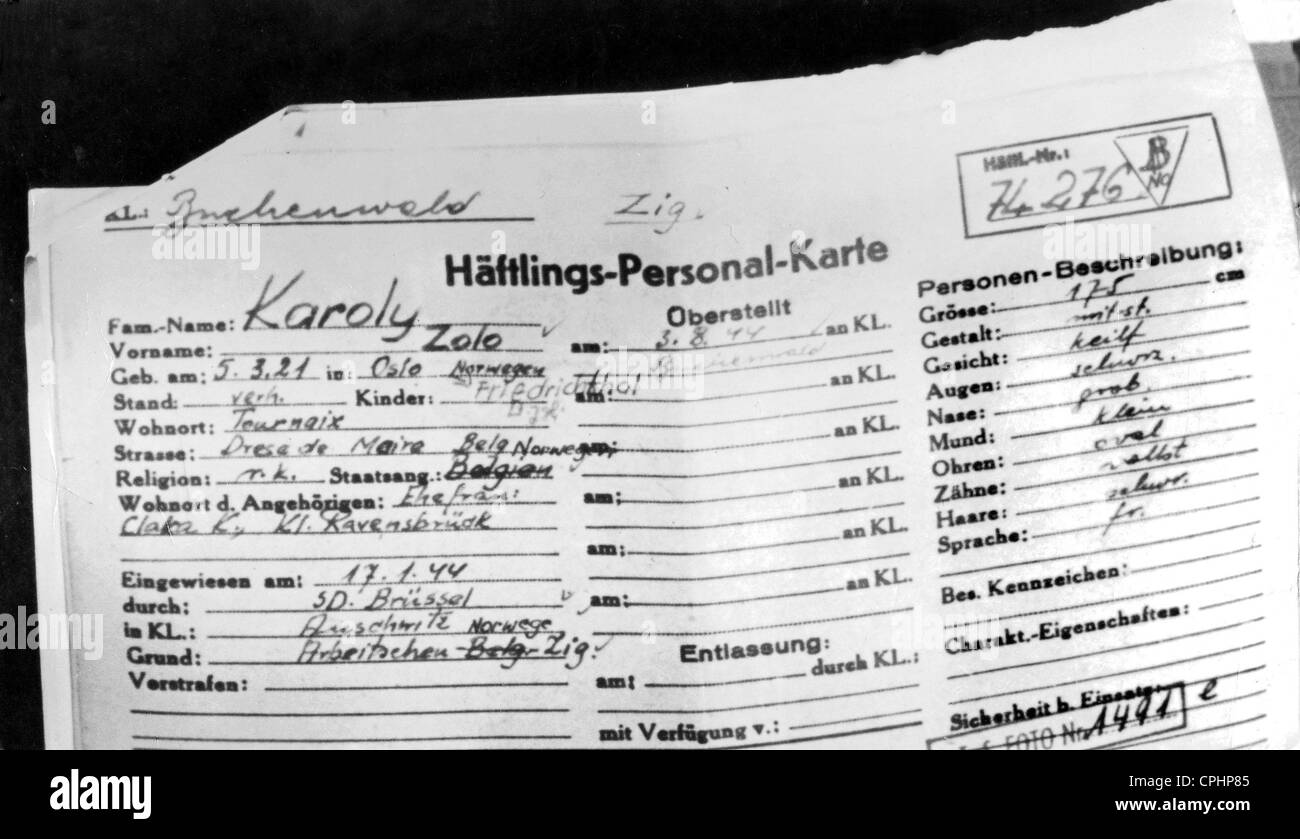 Häftl.-Nr.:
74 276
B
No
KL.: Buchenwald Zig.
Häftlings-Personal-Karte
Fam.-Name: Karoly
Vorname: Zolo
Geb. am: 5.3.21 in: Oslo Norwegen
Stand: verh. Kinder: Friedrichthal
Wohnort: Tournaix
Strasse: Drese de Maire Belg Norwegen
Religion: r.k. Staatsang.: Belgien
Wohnort d. Angehörigen: Ehefrau:
Clara K., Kl. Ravensbrück
Eingewiesen am: 17.1.44
durch: SD. Brüssel
in KL.: Auschwitz Norwege
Grund: Arbeitscheu Belg. Zig.
Vorstrafen:
Überstellt
am: 3.8.44 an KL.
Buchenwald
am: an KL.
am: an KL.
am: an KL.
am: an KL.
am: an KL.
Entlassung:
am: durch KL.:
mit Verfügung v.:
Personen-Beschreibung:
Grösse: 175 cm
Gestalt: mit-st.
Gesicht: keilf
Augen: schwrz.
Nase: grob.
Mund: klein
Ohren: oval
Zähne: vollst
Haare: schwr.
Sprache: fr.
Bes. Kennzeichen:
Charakt.-Eigenschaften:
Sicherheit b. Einsatz:
FOTO Nr. 1491 e
alamy
Image ID: CPHP85
www.alamy.com